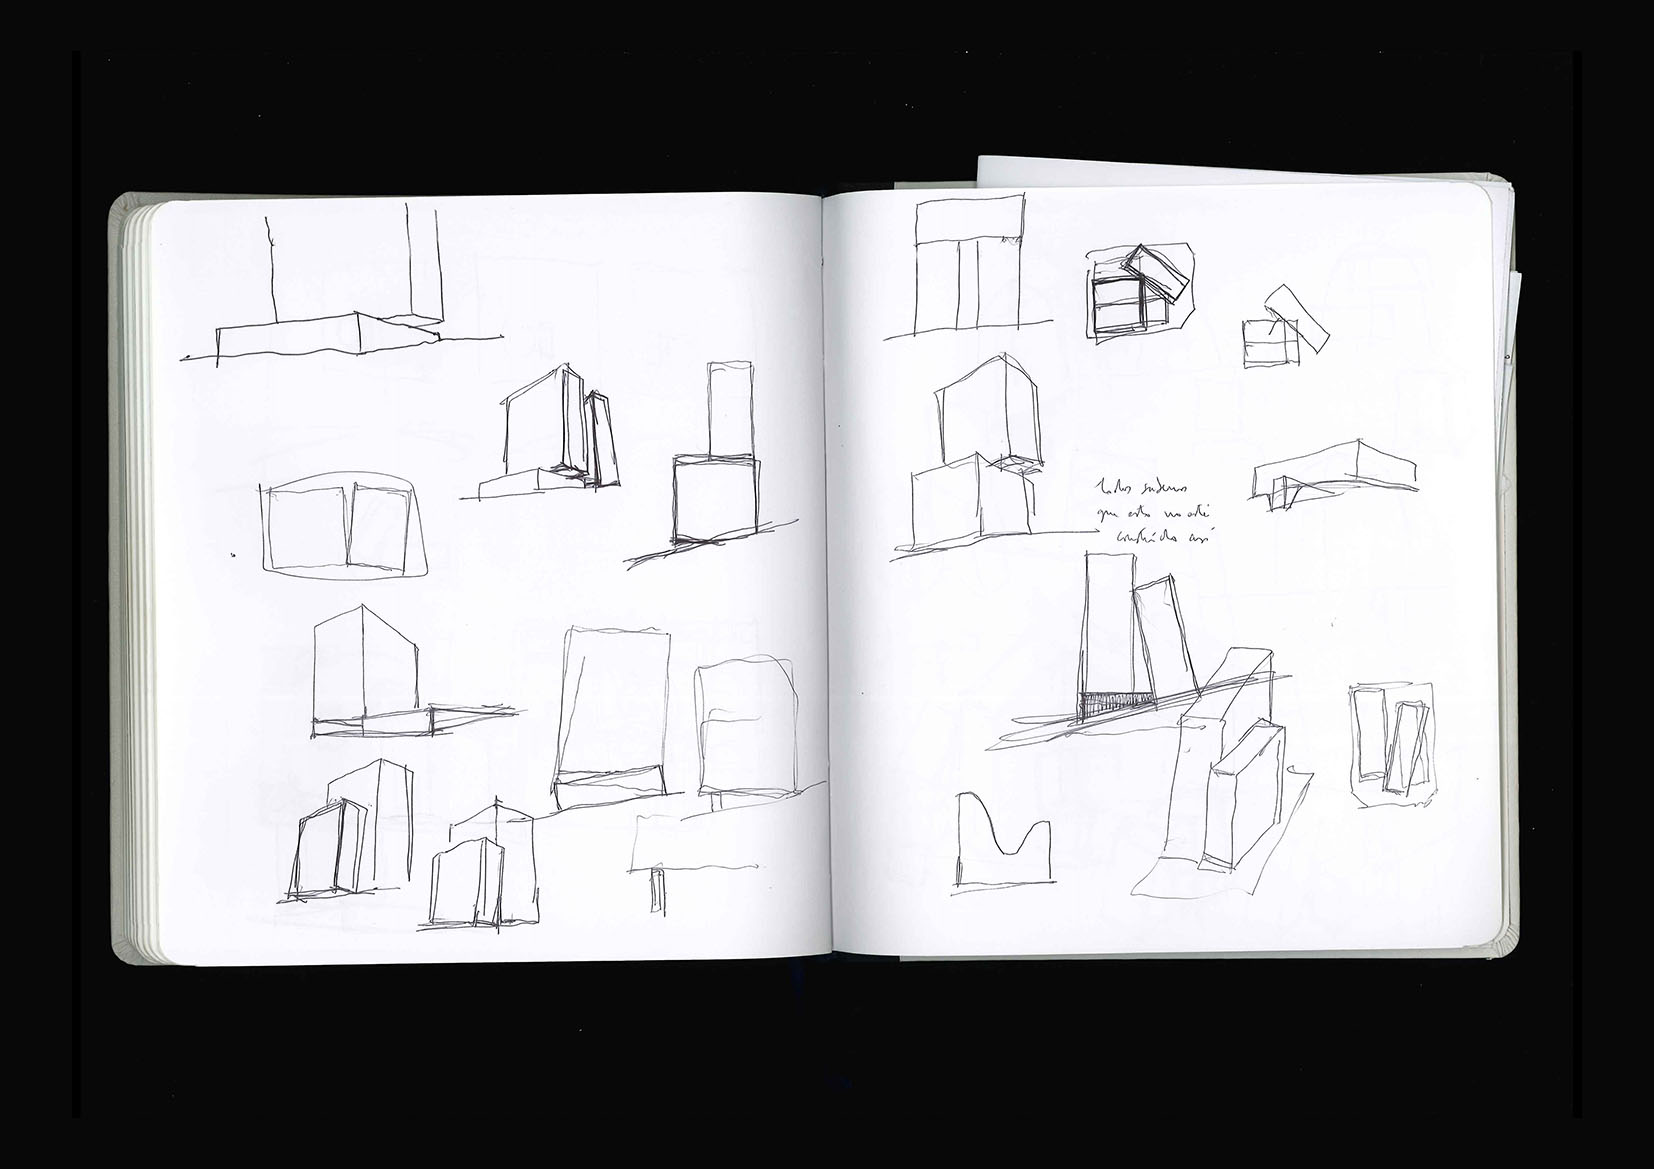 todos sabemos
que esto no está
construido así